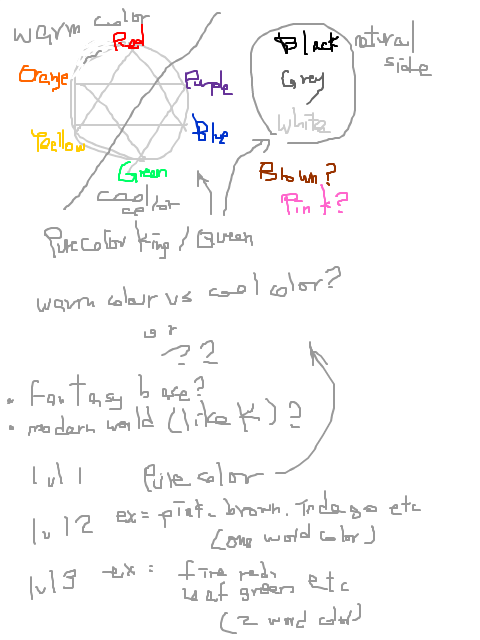 warm color
Red
Orange
Purple
Yellow
Blue
Green
cool color
Black
Grey
White
natural side
Brown?
Pink?
Pure color king / Queen
warm colour vs cool color?
or
??
• fantasy base?
• modern world (like K)?
lvl 1 Pure color
lvl 2 ex= pink. brown. Indego etc
(one word color)
lvl 3 ex= fire red,
leaf green, etc
(2 word color)